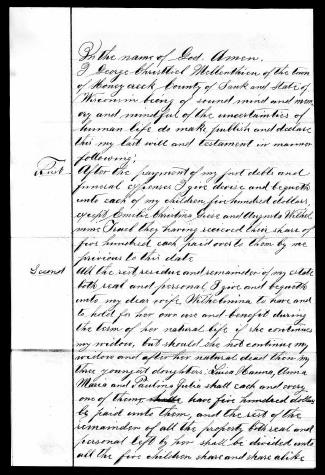 In the name of God. Amen.
I George Christlieb Mellenthien of the town
of Honey creek County of Sauk and State of
Wisconsin being of sound mind and mem
ory and mindful of the uncertainties of
human life do make publish and declare
this my last will and testament in manner
following;
First After the payment of my just debts and
funeral expenses I give devise and bequeath
unto each of my children five hundred dollars,
except Emilie Christina and Augusta Wilhel
mine they having received their share of
five hundred each paid over to them by me
previous to this date
Second All the rest residue and remainder of my estate
both real and personal I give and bequeath
unto my dear wife Wilhelmina to have and
to hold for her own use and benefit during
the term of her natural life if she continues
my widow, but should she not continue my
widow and after her natural death then my
three youngest daughters: Luisa Hanna, Anna
Maria and Paulina Julia shall each and every
one of them have five hundred dollars
be paid unto them, and the rest of the
remaindren of all the property both real and
personal left by her shall be divided unto
all the five children share and share alike